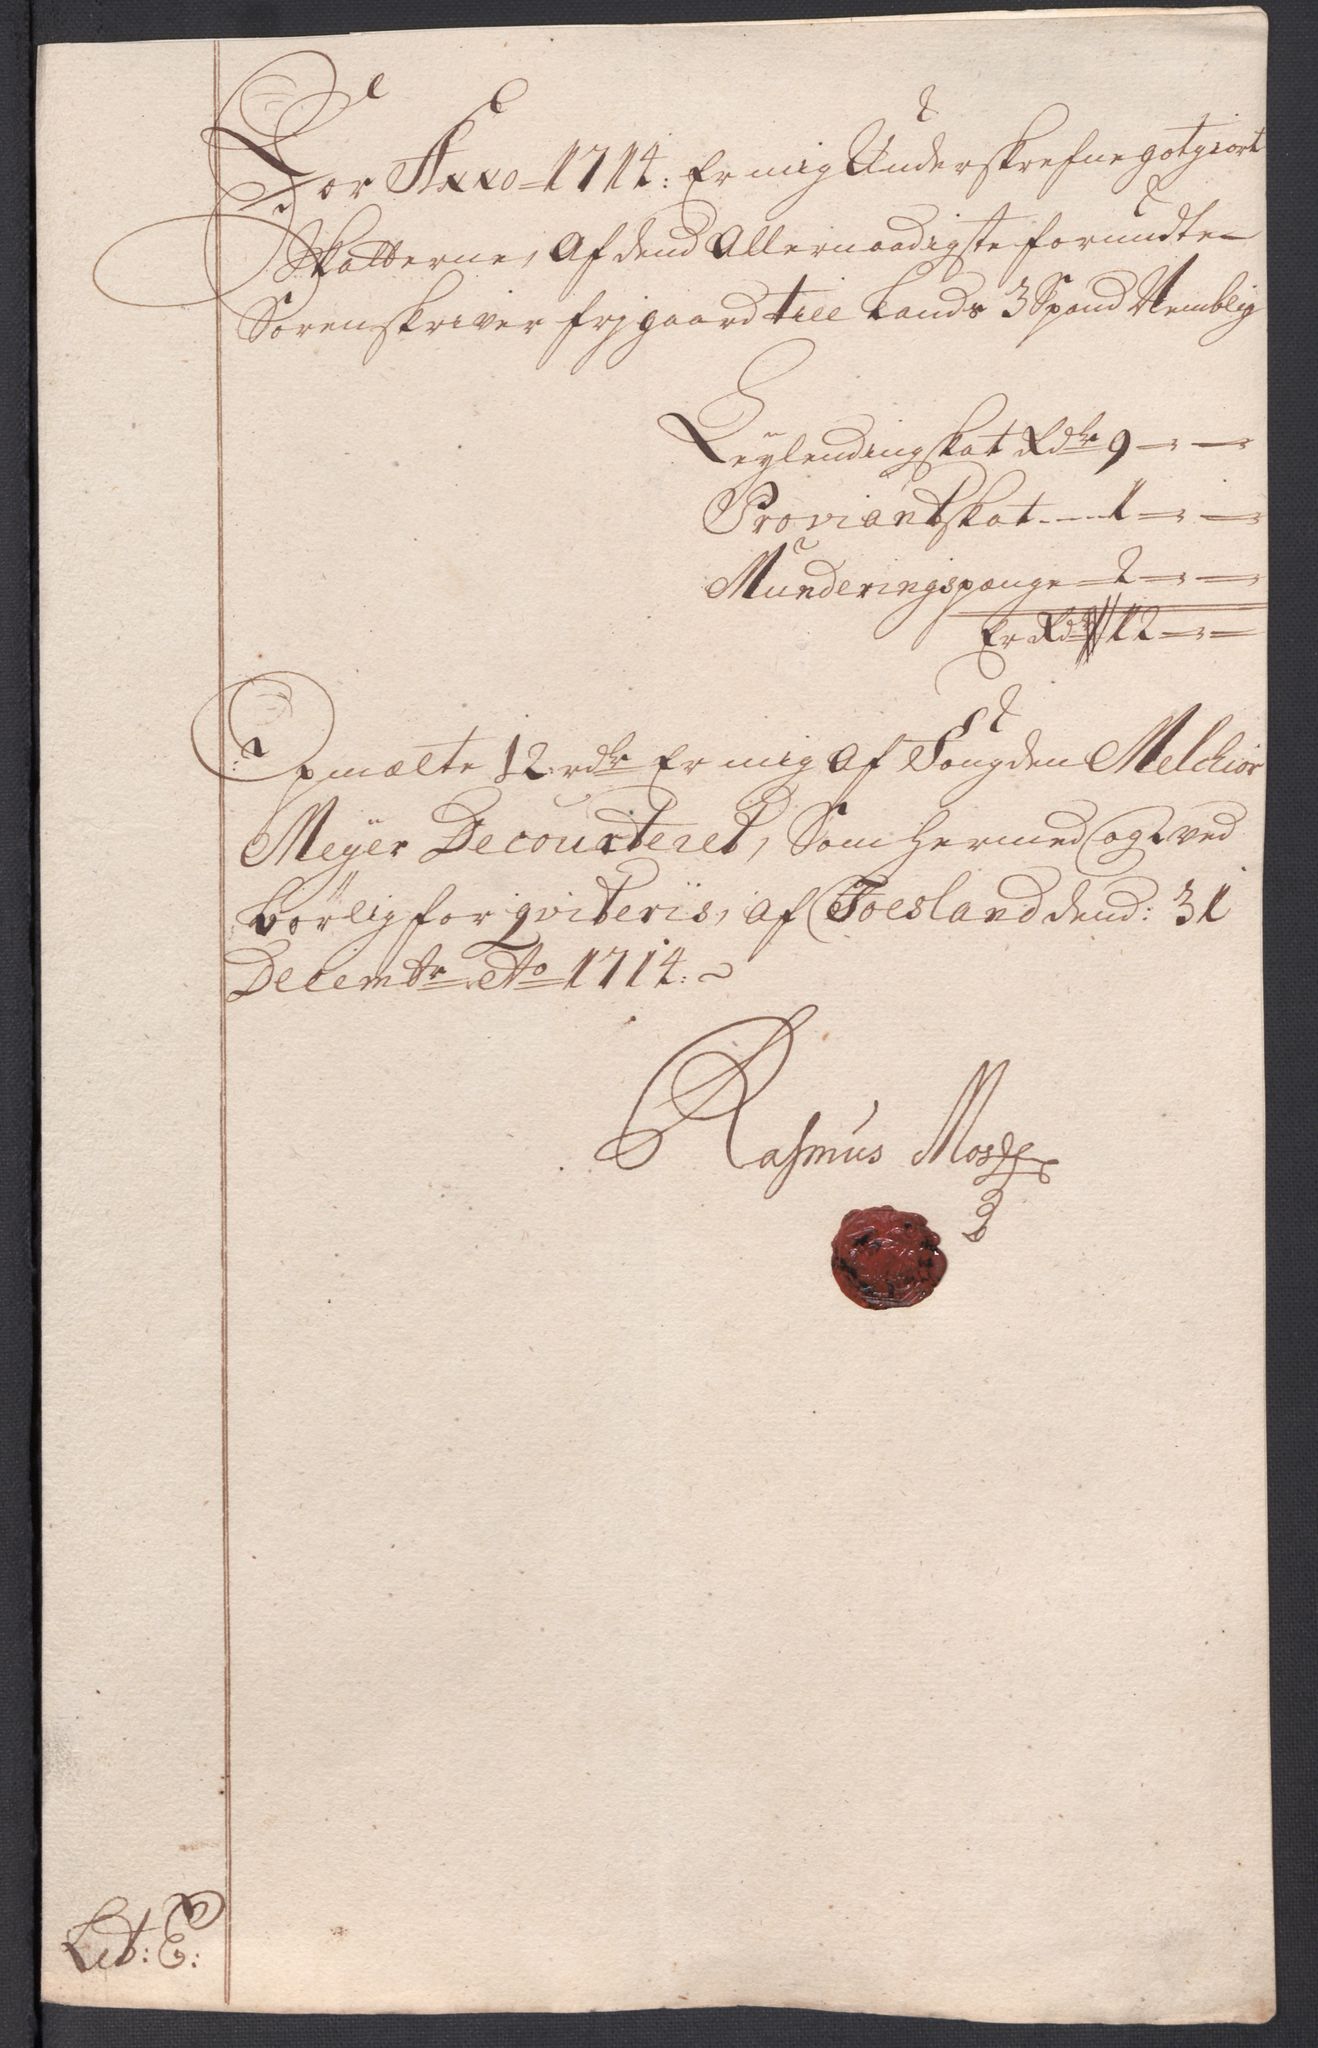 For Anno 1714: Er mig Underskrefne gotgiort
Skatterne, af dend Allernaadigste forundte
Sorenskriver frj gaard till Lands 3 Spand Nemblig
Leylendingskat Rdlr 9 - -
Proviantskat - - - 1 - -
Munderingspænge - 2 - -
Er Rdlr 12 - -
Opmælte 12 rdlr Er mig af Fougden Melchior
Meÿer Decourteret, Som hermed og ved
börlig for qviteris, af Toesland dend: 31
Decembr Ao 1714:
Rasmus
Lit: E: